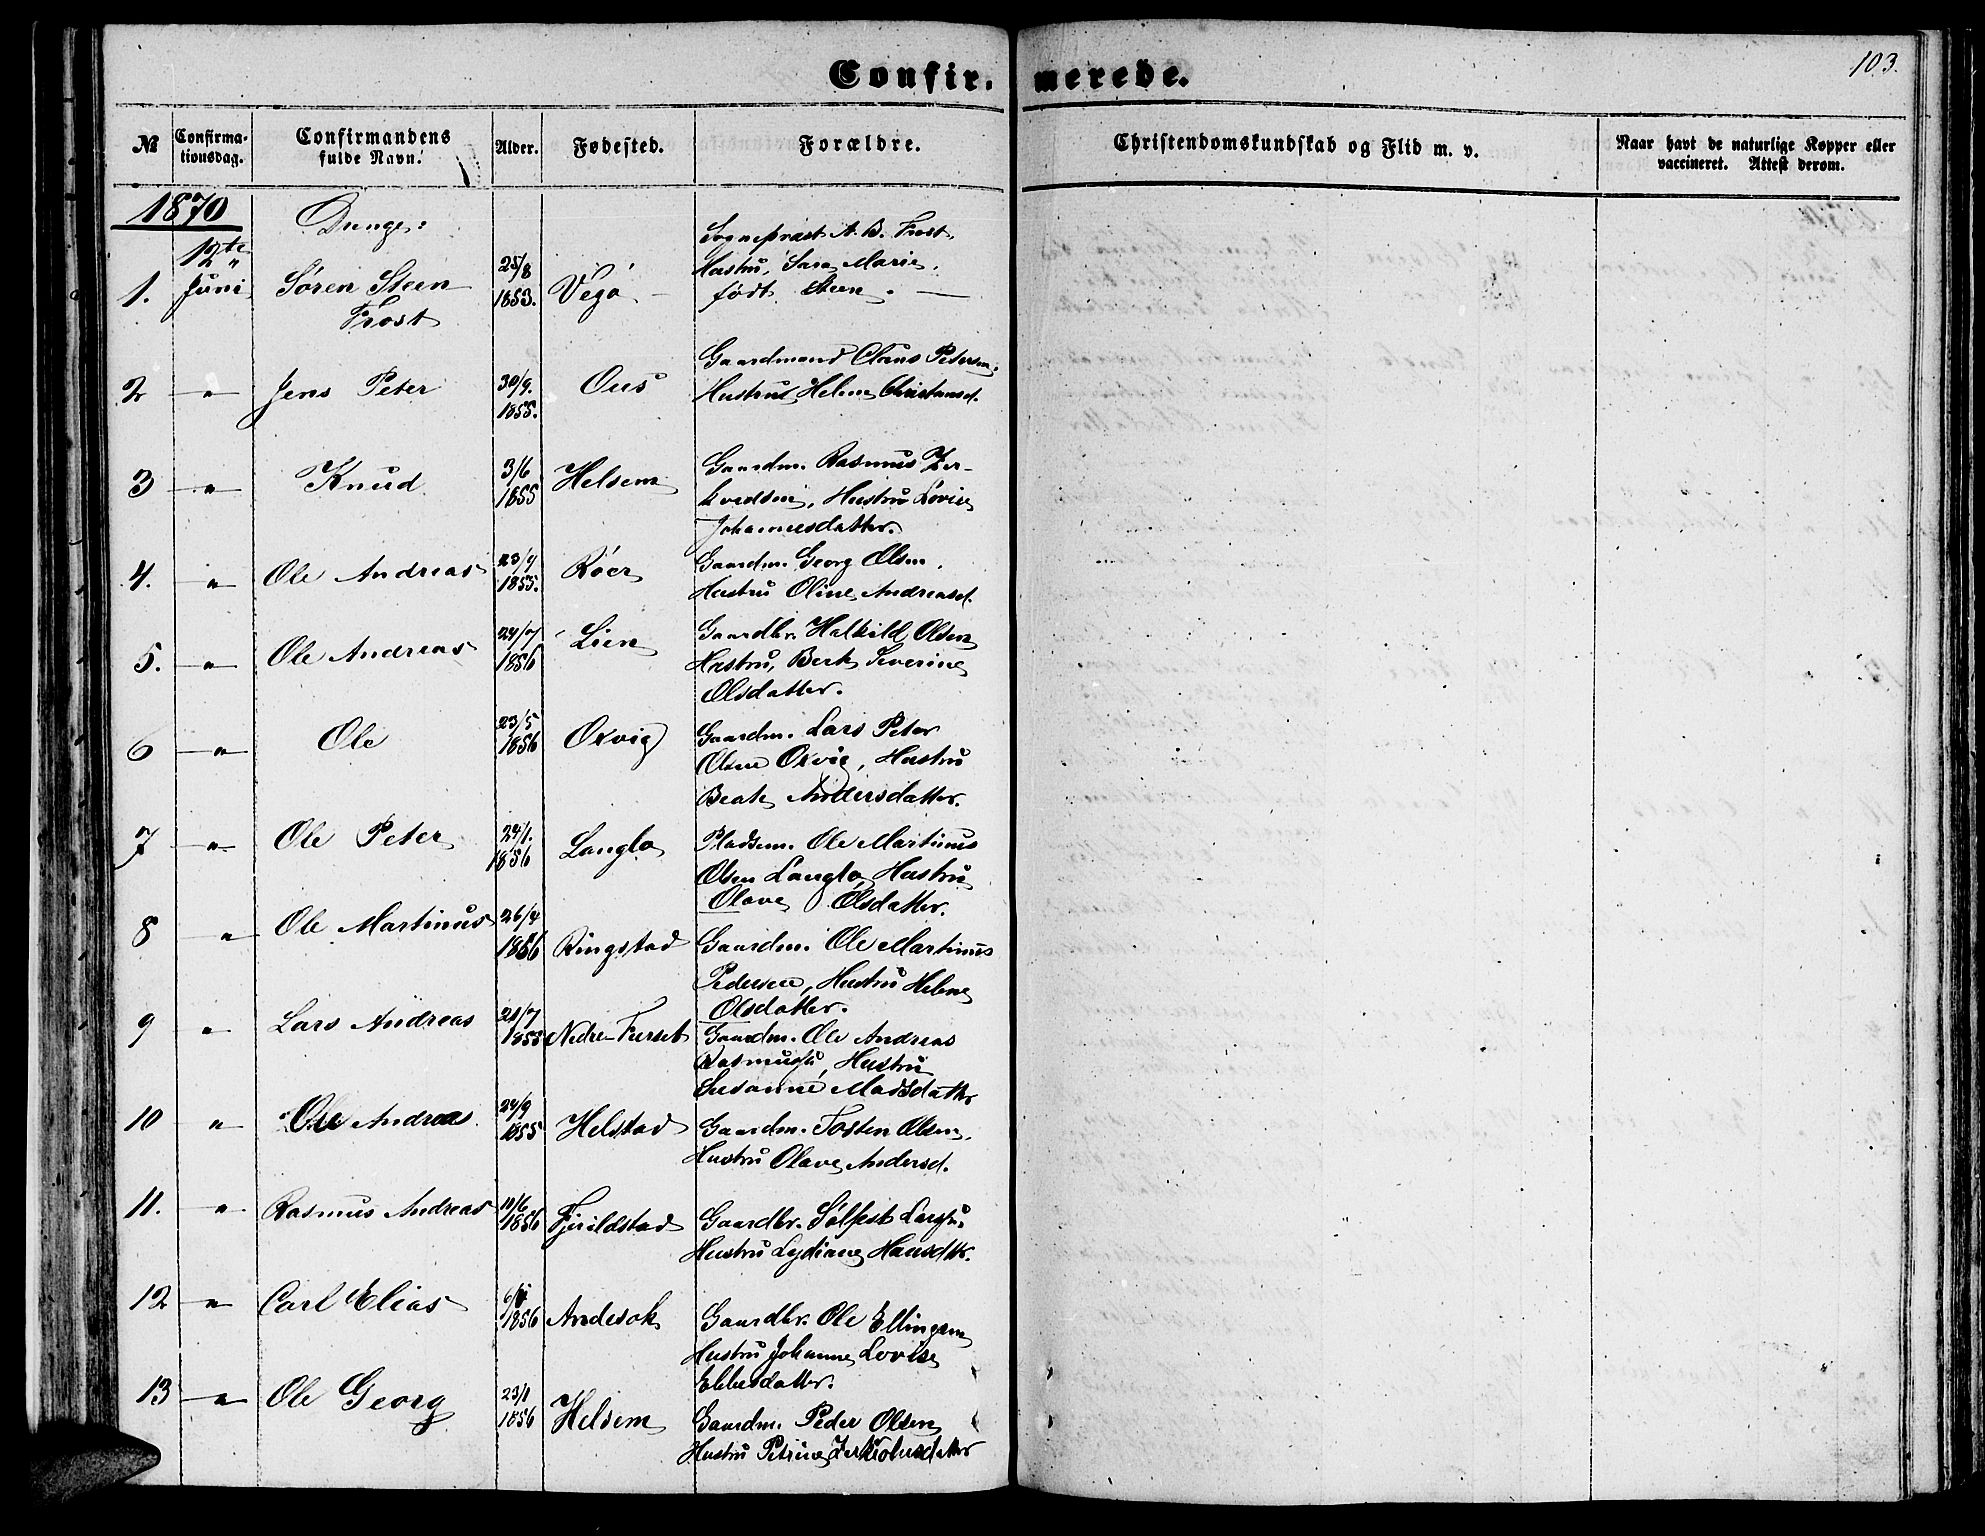 103.
Confir. merede.
№ Confirma-tionsdag. Confirmandens fulde Navn. Alder. Fødested. Forældre. Christendomskundskab og Flid m. v. Naar havt de naturlige Kopper eller vaccineret. Attest derom.
1870 Drenge:
1. 12te Juni Søren Steen Frost 25/8 1853. Vegö — Sognepræst A. B. Frost,
Hustru, Sara Marie,
født Steen. —
2 —"— Jens Peter 30/9. 1855. Ous Gaardmand Claus Petersen,
Hustru Helene Christansd.
3 —"— Knud 3/6 1855 Helsem Gaardm. Rasmus Zer-
kredsen, Hustru Lovise
Johannesdatter.
4. " Ole Andreas 23/9 1855. Röer Gaardm. Georg Olsen,
Hustru Oline Andreasd.
5. —"— Ole Andreas 24/7 1856 Lien Gaardbr. Halkild Olsen
Hustru, Berte Severine
Olsdatter.
6 —"— Ole 23/5 1856 Oxvig Gaardm. Lars Peter
Olsen Oxvig, Hustru
Beate Andersdatter.
7 —"— Ole Peter 24/1. 1856 Langlo Pladsem. Ole Martinus
Olsen Langlo, Hustru
Olave Olsdatter.
8 —"— Ole Martinus 26/4 1856 Ringstad Gaardm. Ole Martinus
Pedersen, Hustru Helene
Olsdatter.
9 " Lars Andreas 1855 Nedre-Furset Gaardm. Ole Andreas
Rasmuss., Hustru
Susanne Madsdatter
10 " Ole Andreas 24/9 1855 Helstad Gaardm. Tosten Olsen,
Hustru Olave Andersd.
11. —"— Rasmus Andreas 10/6 1856 Fjerildstad Gaardbr. Solfest Larss.,
Hustru Lydiane Hansdtr.
12 —"— Carl Elias 1856 Andesok Gaardbr. Ole Ellingsen
Hustru Johanne Lovise
Ebbesdatter.
13 —"— Ole Georg 23/1 1856 Helsem Gaardm. Peder Olsen
Hustru Petrine